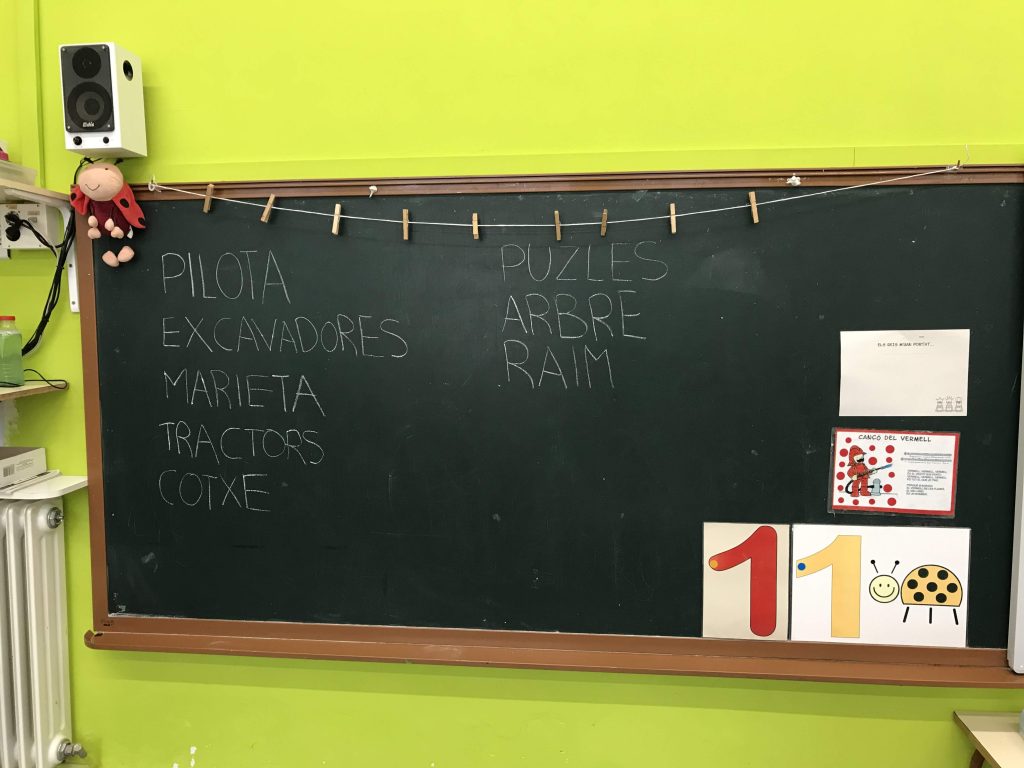 PILOTA
EXCAVADORES
MARIETA
TRACTORS
COTXE
PUZLES
ARBRE
RAIM
ELS REIS M'HAN PORTAT...
CANÇÓ DEL VERMELL
1
1